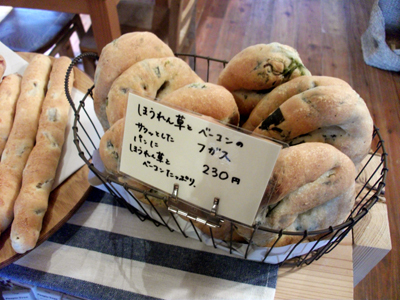 ほうれん草と ベーコンの
フガス
サクッとした
パンに
ほうれん草と
ベーコンたっぷり。
230円